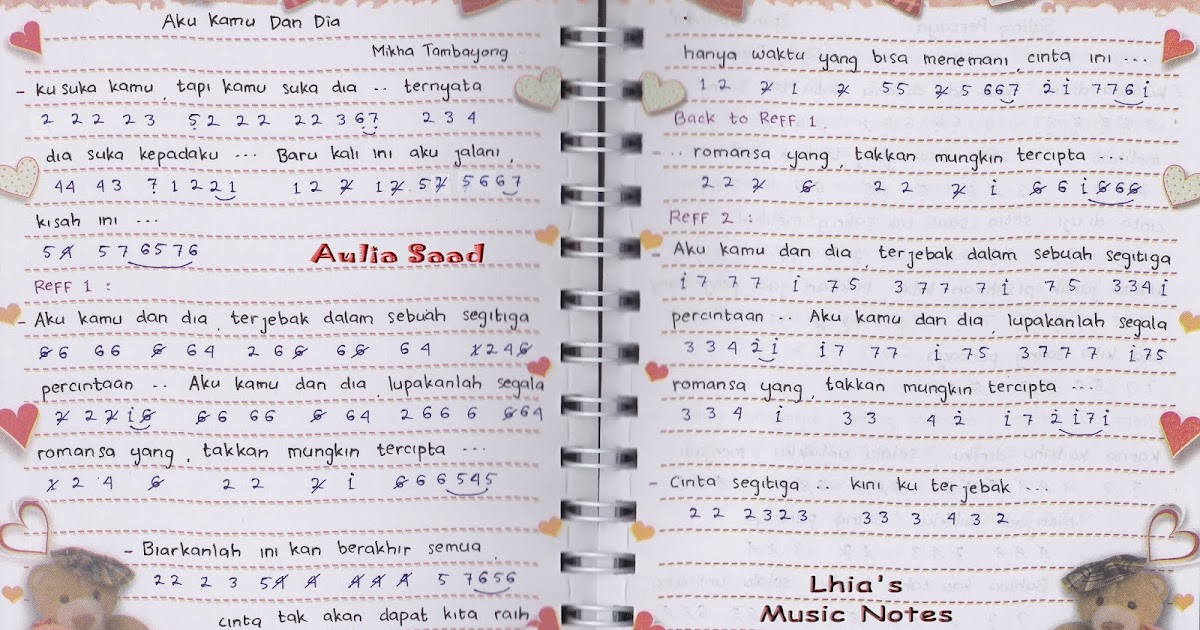 Aku Kamu Dan Dia
Mikha Tambayong
- Ku suka kamu, tapi kamu suka dia .. ternyata
2 2 2 2 3 5 2 2 2 2 2 3 6 7 2 3 4
dia suka kepadaku ... Baru kali ini aku jalani,
44 43 7 1 2 2 1 1 2 2 1 2 5 7 5 6 6 7
kisah ini ...
5 4 5 7 6 5 7 6
Aulia Saad
Reff 1 :
- Aku kamu dan dia, terjebak dalam sebuah segitiga
6 6 6 6 6 6 4 2 6 6 6 6 6 4 1 2 4 6
percintaan .. Aku kamu dan dia, lupakanlah segala
2 2 2 i 6 6 6 6 6 6 6 4 2 6 6 6 6 6 4
romansa yang, takkan mungkin tercipta ...
1 2 4 6 2 2 2 i 6 6 6 5 4 5
- Biarkanlah ini kan berakhir semua,
2 2 2 3 5 4 4 4 4 4 5 7 6 5 6
cinta tak akan dapat kita raih
hanya waktu yang bisa menemani, cinta ini ...
1 2 2 1 2 5 5 7 5 6 6 7 2 i 7 7 6 i
Back to Reff 1.
- .. romansa yang, takkan mungkin tercipta ....
2 2 2 6 2 2 2 i 6 6 i 6 6 6
Reff 2 :
- Aku kamu dan dia, terjebak dalam sebuah segitiga
i 7 7 7 i 7 5 3 7 7 7 i 7 5 3 3 4 i
percintaan .. Aku kamu dan dia, lupakanlah segala
3 3 4 2 i i 7 7 7 i 7 5 3 7 7 7 i 7 5
romansa yang, takkan mungkin tercipta ...
3 3 4 i 3 3 4 2 i 7 2 i 7 i
- Cinta segitiga .. kini ku terjebak ...
2 2 2 3 2 3 3 3 3 4 3 2
Lhia's
Music Notes